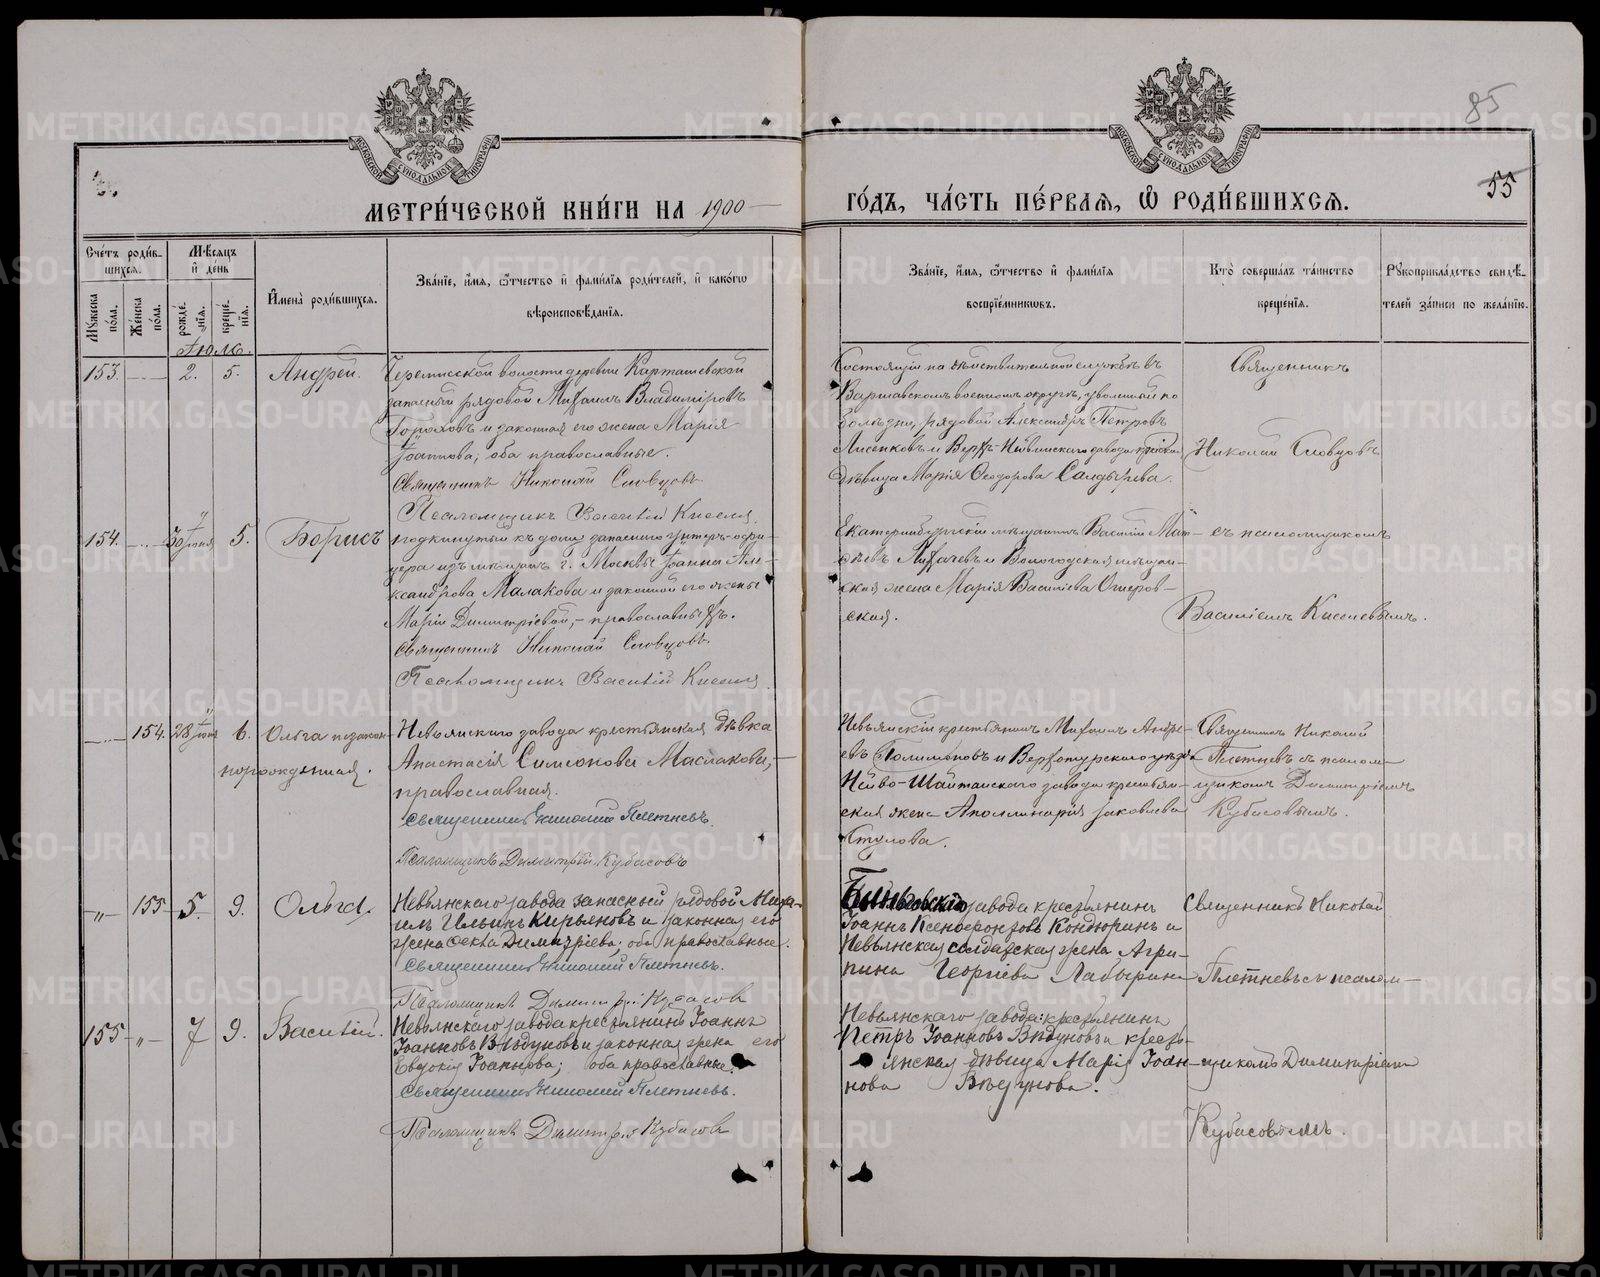 85
55
МЕТРИ́ЧЕСКОЙ КНИ́ГИ НА 1900
ГО́ДЪ, ЧА́СТЬ ПЕ́РВАѦ, Ѡ҆ РОДИ́ВШИХСѦ.
Сче́тъ роди́в-
шихся.
Мѣ́сяцъ
и҆ де́нь
И҆мена̀ роди́вшихся.
Зва́нїе, и҆́мя, ѻ҆́тчество и҆ фами́лїя роди́телей, и҆ како́гѡ
вѣроисповѣ́данїя.
Му́жеска
по́ла.
Же́нска
по́ла.
рожде́-
нїя.
креще́-
нїя.
Зва́нїе, и҆́мя, ѻ҆́тчество и҆ фами́лїя
воспрїе́мниковъ.
Кто̀ соверша́лъ та́инство
креще́нїя.
Рꙋкоприкла́дство свидѣ́-
телей за́писи по жела́нїю.
Іюль.
153. 2. 5. Андрей.
Черемисской волости деревни Карташевской
запасный рядовой Михаилъ Владиміровъ
Гороховъ и законная его жена Марія
Іоаннова; оба православные.
Священникъ Николай Словцовъ.
Псаломщикъ Василій Киселев
Состоящій на дѣйствительной службѣ въ
Варшавскомъ военномъ округѣ, уволенный по
болѣзни, рядовой Александръ Петровъ
и Верхъ-Нейвинскаго завода
дѣвица Марія Ѳеодорова
Священникъ
Николай Словцовъ
154. 30 іюня 5. Борисъ
подкинутый къ дому запаснаго унтеръ-офи-
цера изъ мѣщанъ г. Москвы Іоанна Але-
ксандрова Малакова и законной его жены
Маріи Димитріевой,- православныхъ.
Священникъ Николай Словцовъ.
Псаломщикъ Василій Киселев
Екатеринбургскій мѣщанинъ Василій Мат-
ѳѣевъ Лихачевъ и Вологодская мѣщан-
ская жена Марія Василіева
ская.
съ псаломщикомъ
Василіемъ Киселевымъ.
154. 28 іюня 6. Ольга незакон-
норожденная.
Невьянскаго завода крестьянская дѣвка
Анастасія Симеонова Маслакова,-
православная.
Священникъ Николай Плетневъ.
Псаломщикъ Димитрій Кубасовъ
Невьянскій крестьянинъ Михаилъ Андре-
евъ и Верхотурскаго уѣзда
Нейво-Шайтанскаго завода крестьян-
ская жена Аполлинарія Іаковлева
Стулова.
Священникъ Николай
Плетневъ съ псалом-
щикомъ Димитріемъ
Кубасовымъ.
155 5. 9. Ольга.
Невьянскаго завода запасный рядовой Миха-
илъ Ильинъ Кирьяновъ и законная его
жена Ѳекла Димитріева; оба православные.
Священникъ Николай Плетневъ.
Псаломщикъ Димитрій Кубасовъ
завода крестьянинъ
Іоаннъ Ксенофонтовъ Кондюринъ и
Невьянская солдатская жена Агри-
пина Георгіева Лабырина
Священникъ Николай
Плетневъ съ псалом-
155 7 9. Василій.
Невьянскаго завода крестьянинъ Іоаннъ
Іоанновъ Вѣдуновъ и законная жена его
Евдокія Іоаннова; оба православные.
Священникъ Николай Плетневъ.
Псаломщикъ Димитрій Кубасовъ
Невьянскаго завода: крестьянинъ
Петръ Іоанновъ Вѣдуновъ и кресть-
янская дѣвица Марія Іоан-
нова Вѣдунова.
щикомъ Димитріемъ
Кубасовымъ.